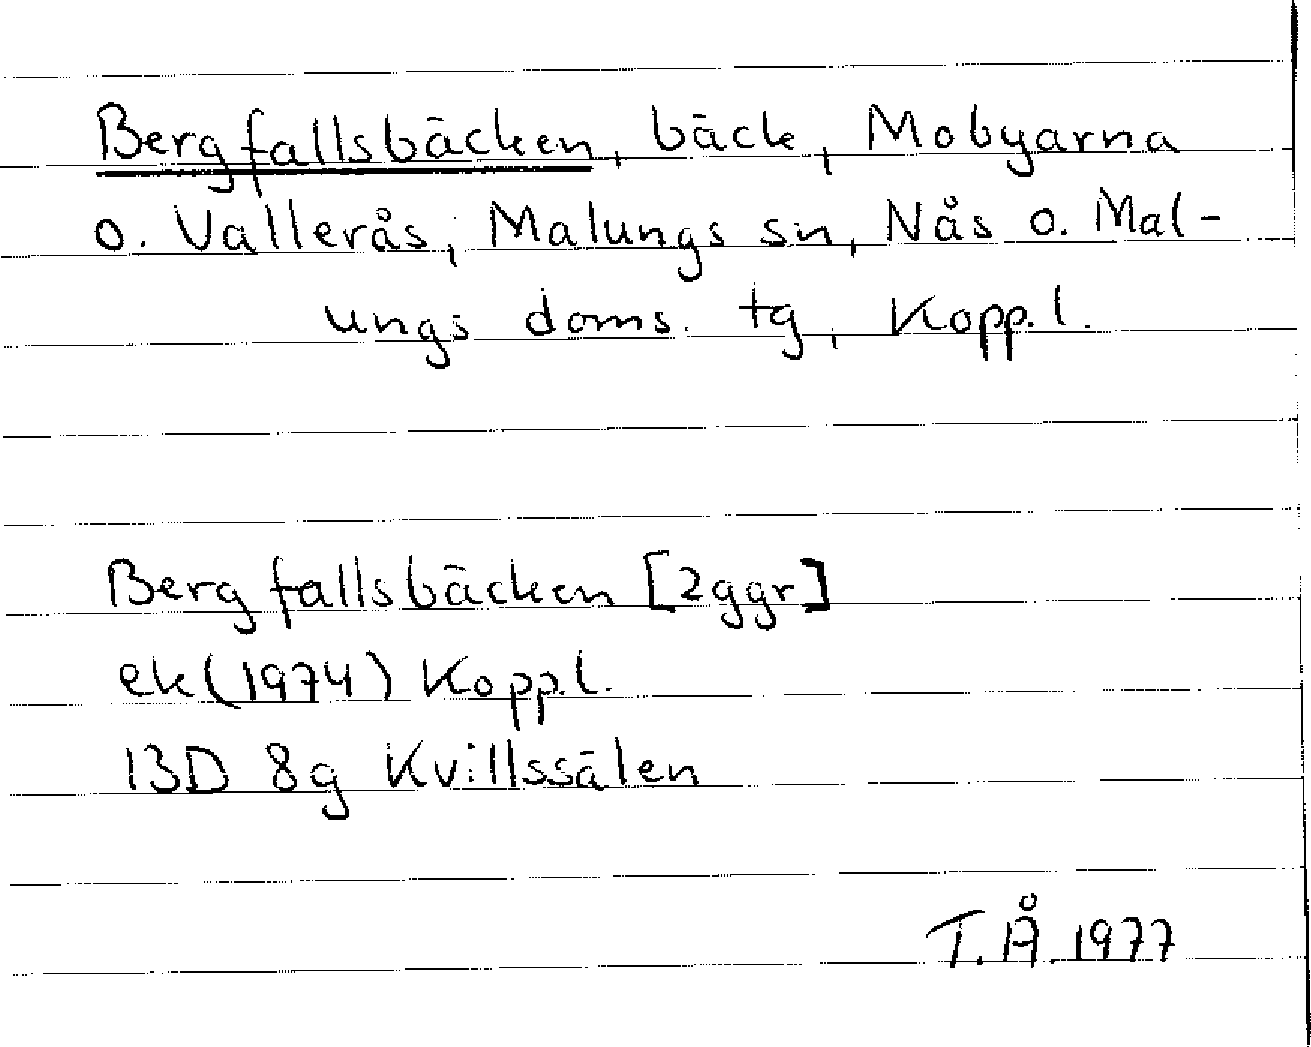 Bergfallsbäcken, bäck, Mobyarna
o. Vallerås, Malungs sn, Nås o. Mal-
ungs doms. tg, Kopp.l.
Bergfallsbäcken [2ggr]
ek(1974) Kopp.l.
13D 8g Kvillssälen
T.Å.1977